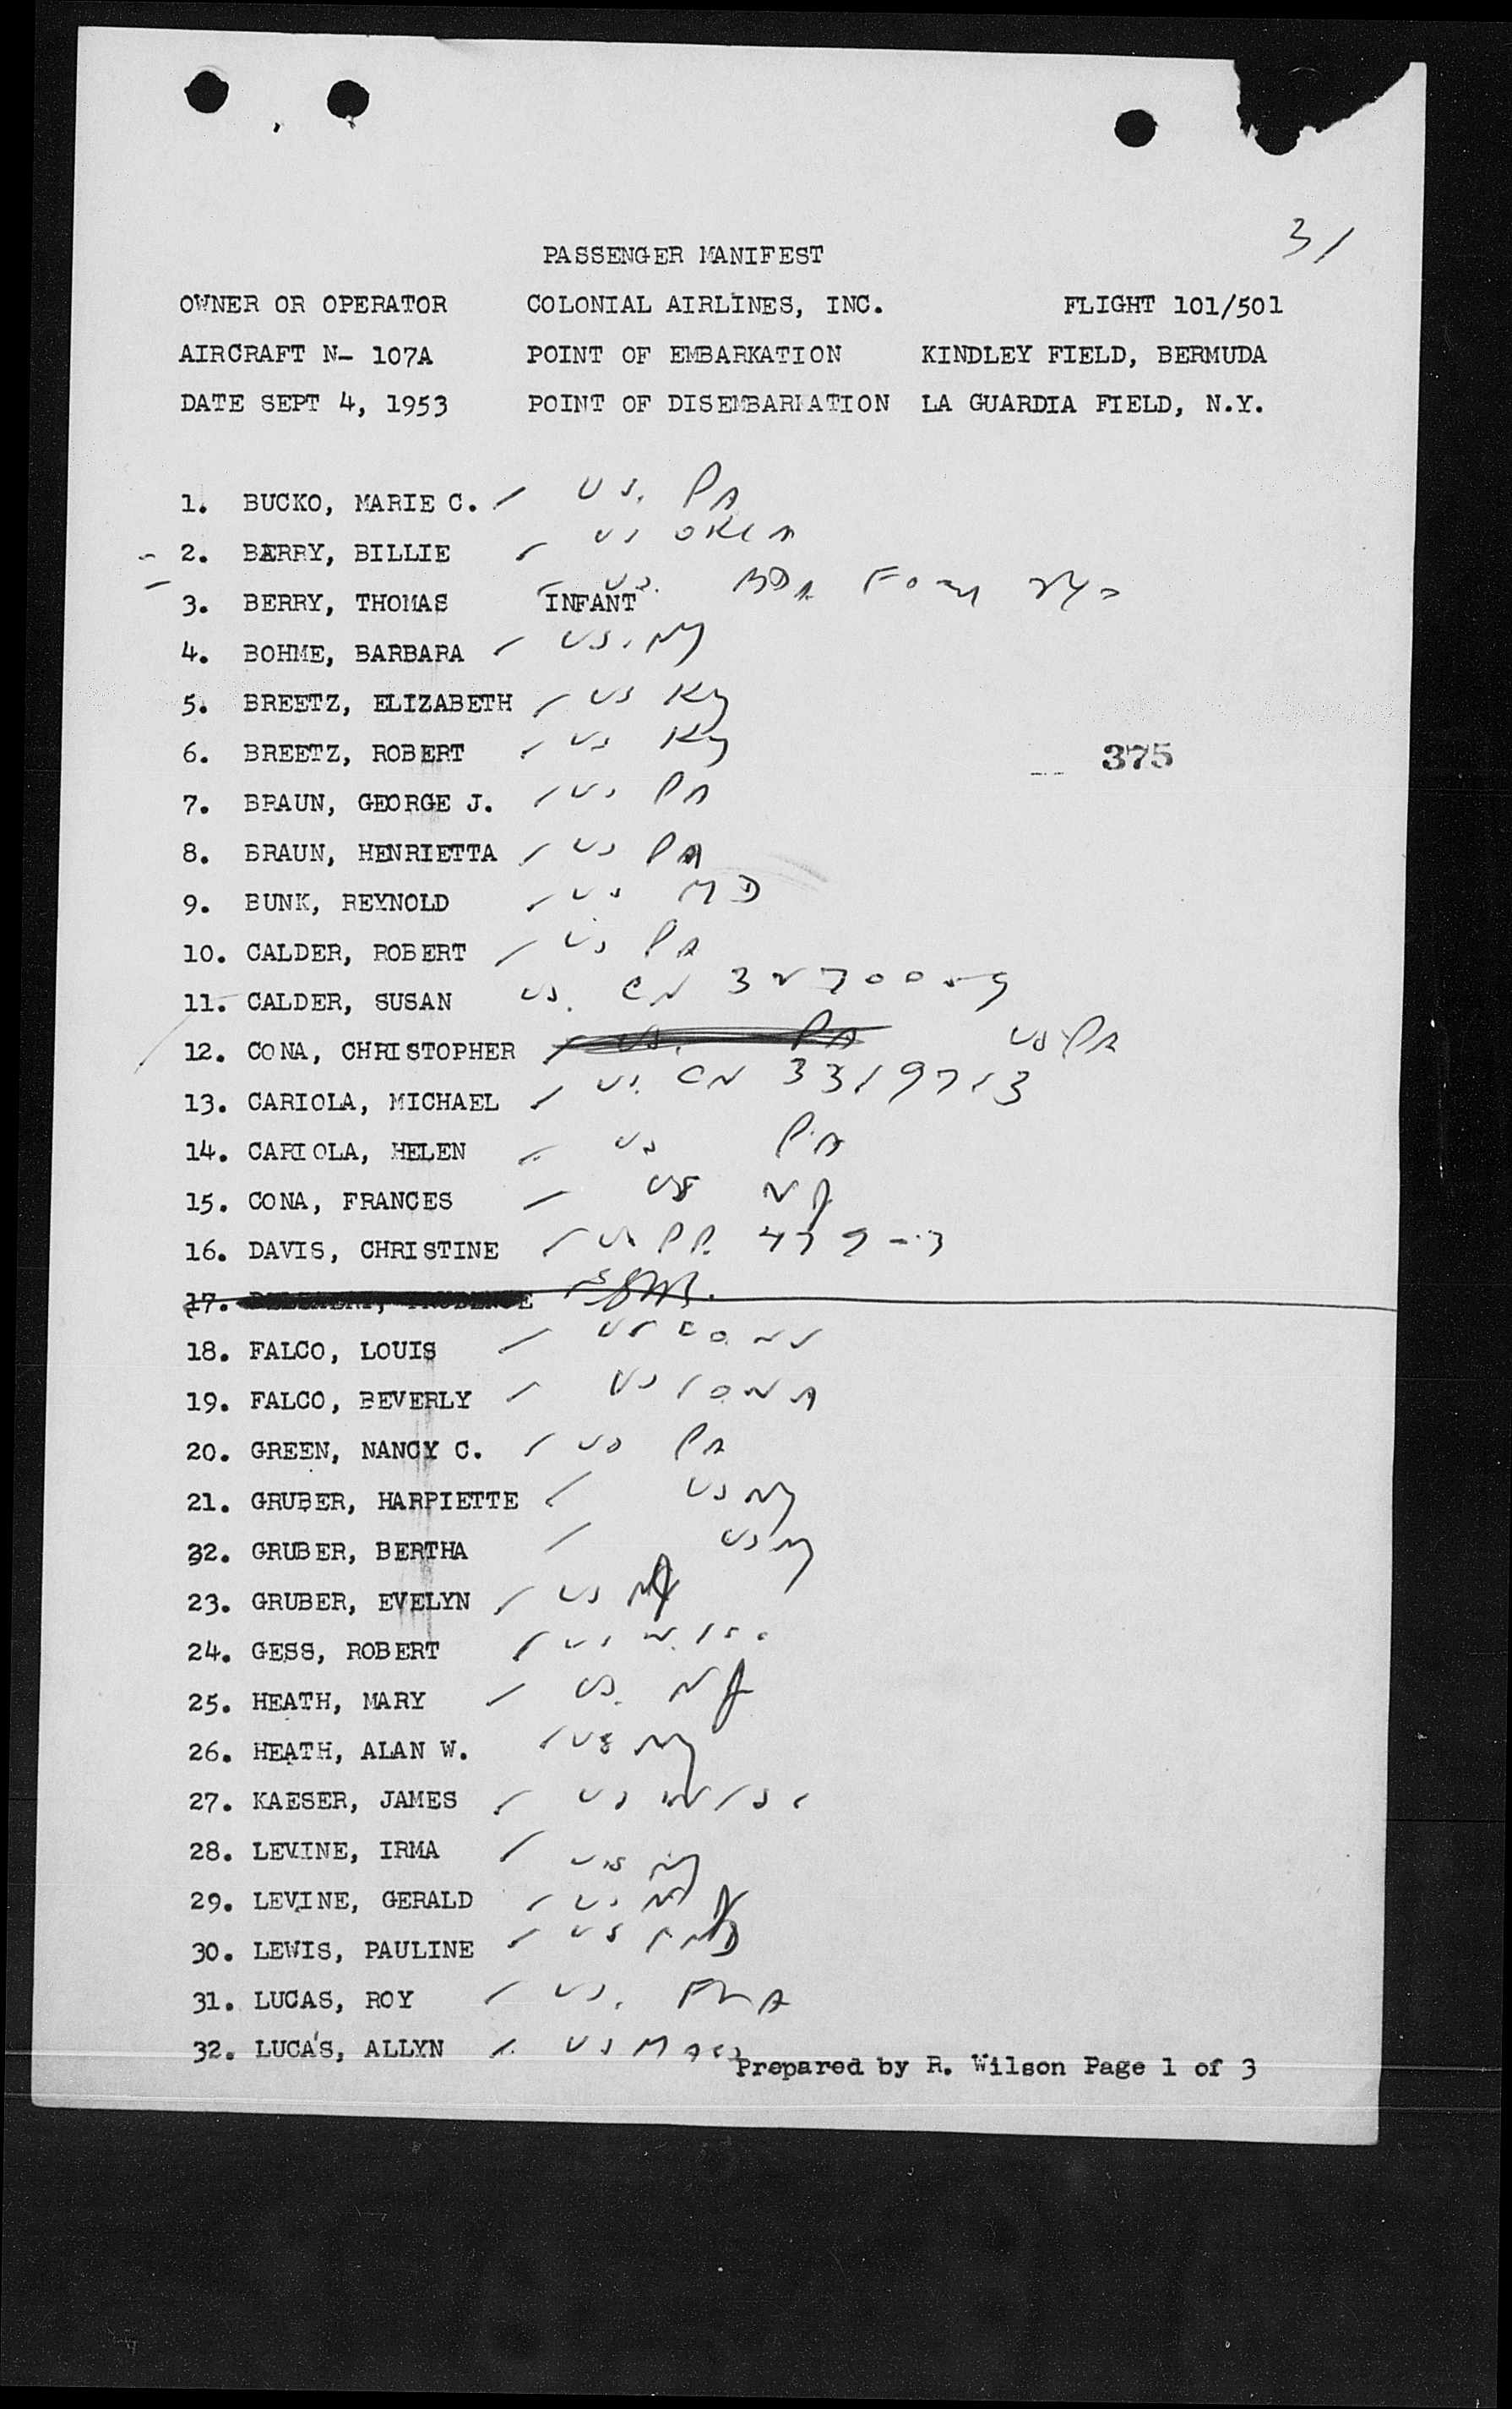 31
PASSENGER MANIFEST
OWNER OR OPERATOR COLONIAL AIRLINES, INC. FLIGHT 101/501
AIRCRAFT N- 107A POINT OF EMBARKATION KINDLEY FIELD, BERMUDA
DATE SEPT 4, 1953 POINT OF DISEMBARKATION LA GUARDIA FIELD, N.Y.
1. BUCKO, MARIE C. US. PA
2. BERRY, BILLIE US OKLA
3. BERRY, THOMAS INFANT US. BDA Form 240
4. BOHME, BARBARA US. NY
5. BREETZ, ELIZABETH US Ky
6. BREETZ, ROBERT US Ky
375
7. BRAUN, GEORGE J. US PA
8. BRAUN, HENRIETTA US PA
9. BUNK, REYNOLD US MD
10. CALDER, ROBERT US PA
11. CALDER, SUSAN US. CN 3270059
12. CONA, CHRISTOPHER US. PA US PA
13. CARIOLA, MICHAEL US. CN 3319713
14. CARIOLA, HELEN US PA
15. CONA, FRANCES US NJ
16. DAVIS, CHRISTINE US PP.
17.
18. FALCO, LOUIS US CONN
19. FALCO, BEVERLY US IOWA
20. GREEN, NANCY C. US PA
21. GRUBER, HARRIETTE US NY
32. GRUBER, BERTHA US NY
23. GRUBER, EVELYN US
24. GESS, ROBERT US WISC
25. HEATH, MARY US. NJ
26. HEATH, ALAN W. US NY
27. KAESER, JAMES US WISC
28. LEVINE, IRMA US NY
29. LEVINE, GERALD US
30. LEWIS, PAULINE US
31. LUCAS, ROY US. FLA
32. LUCAS, ALLYN US Mass
Prepared by R. Wilson Page 1 of 3